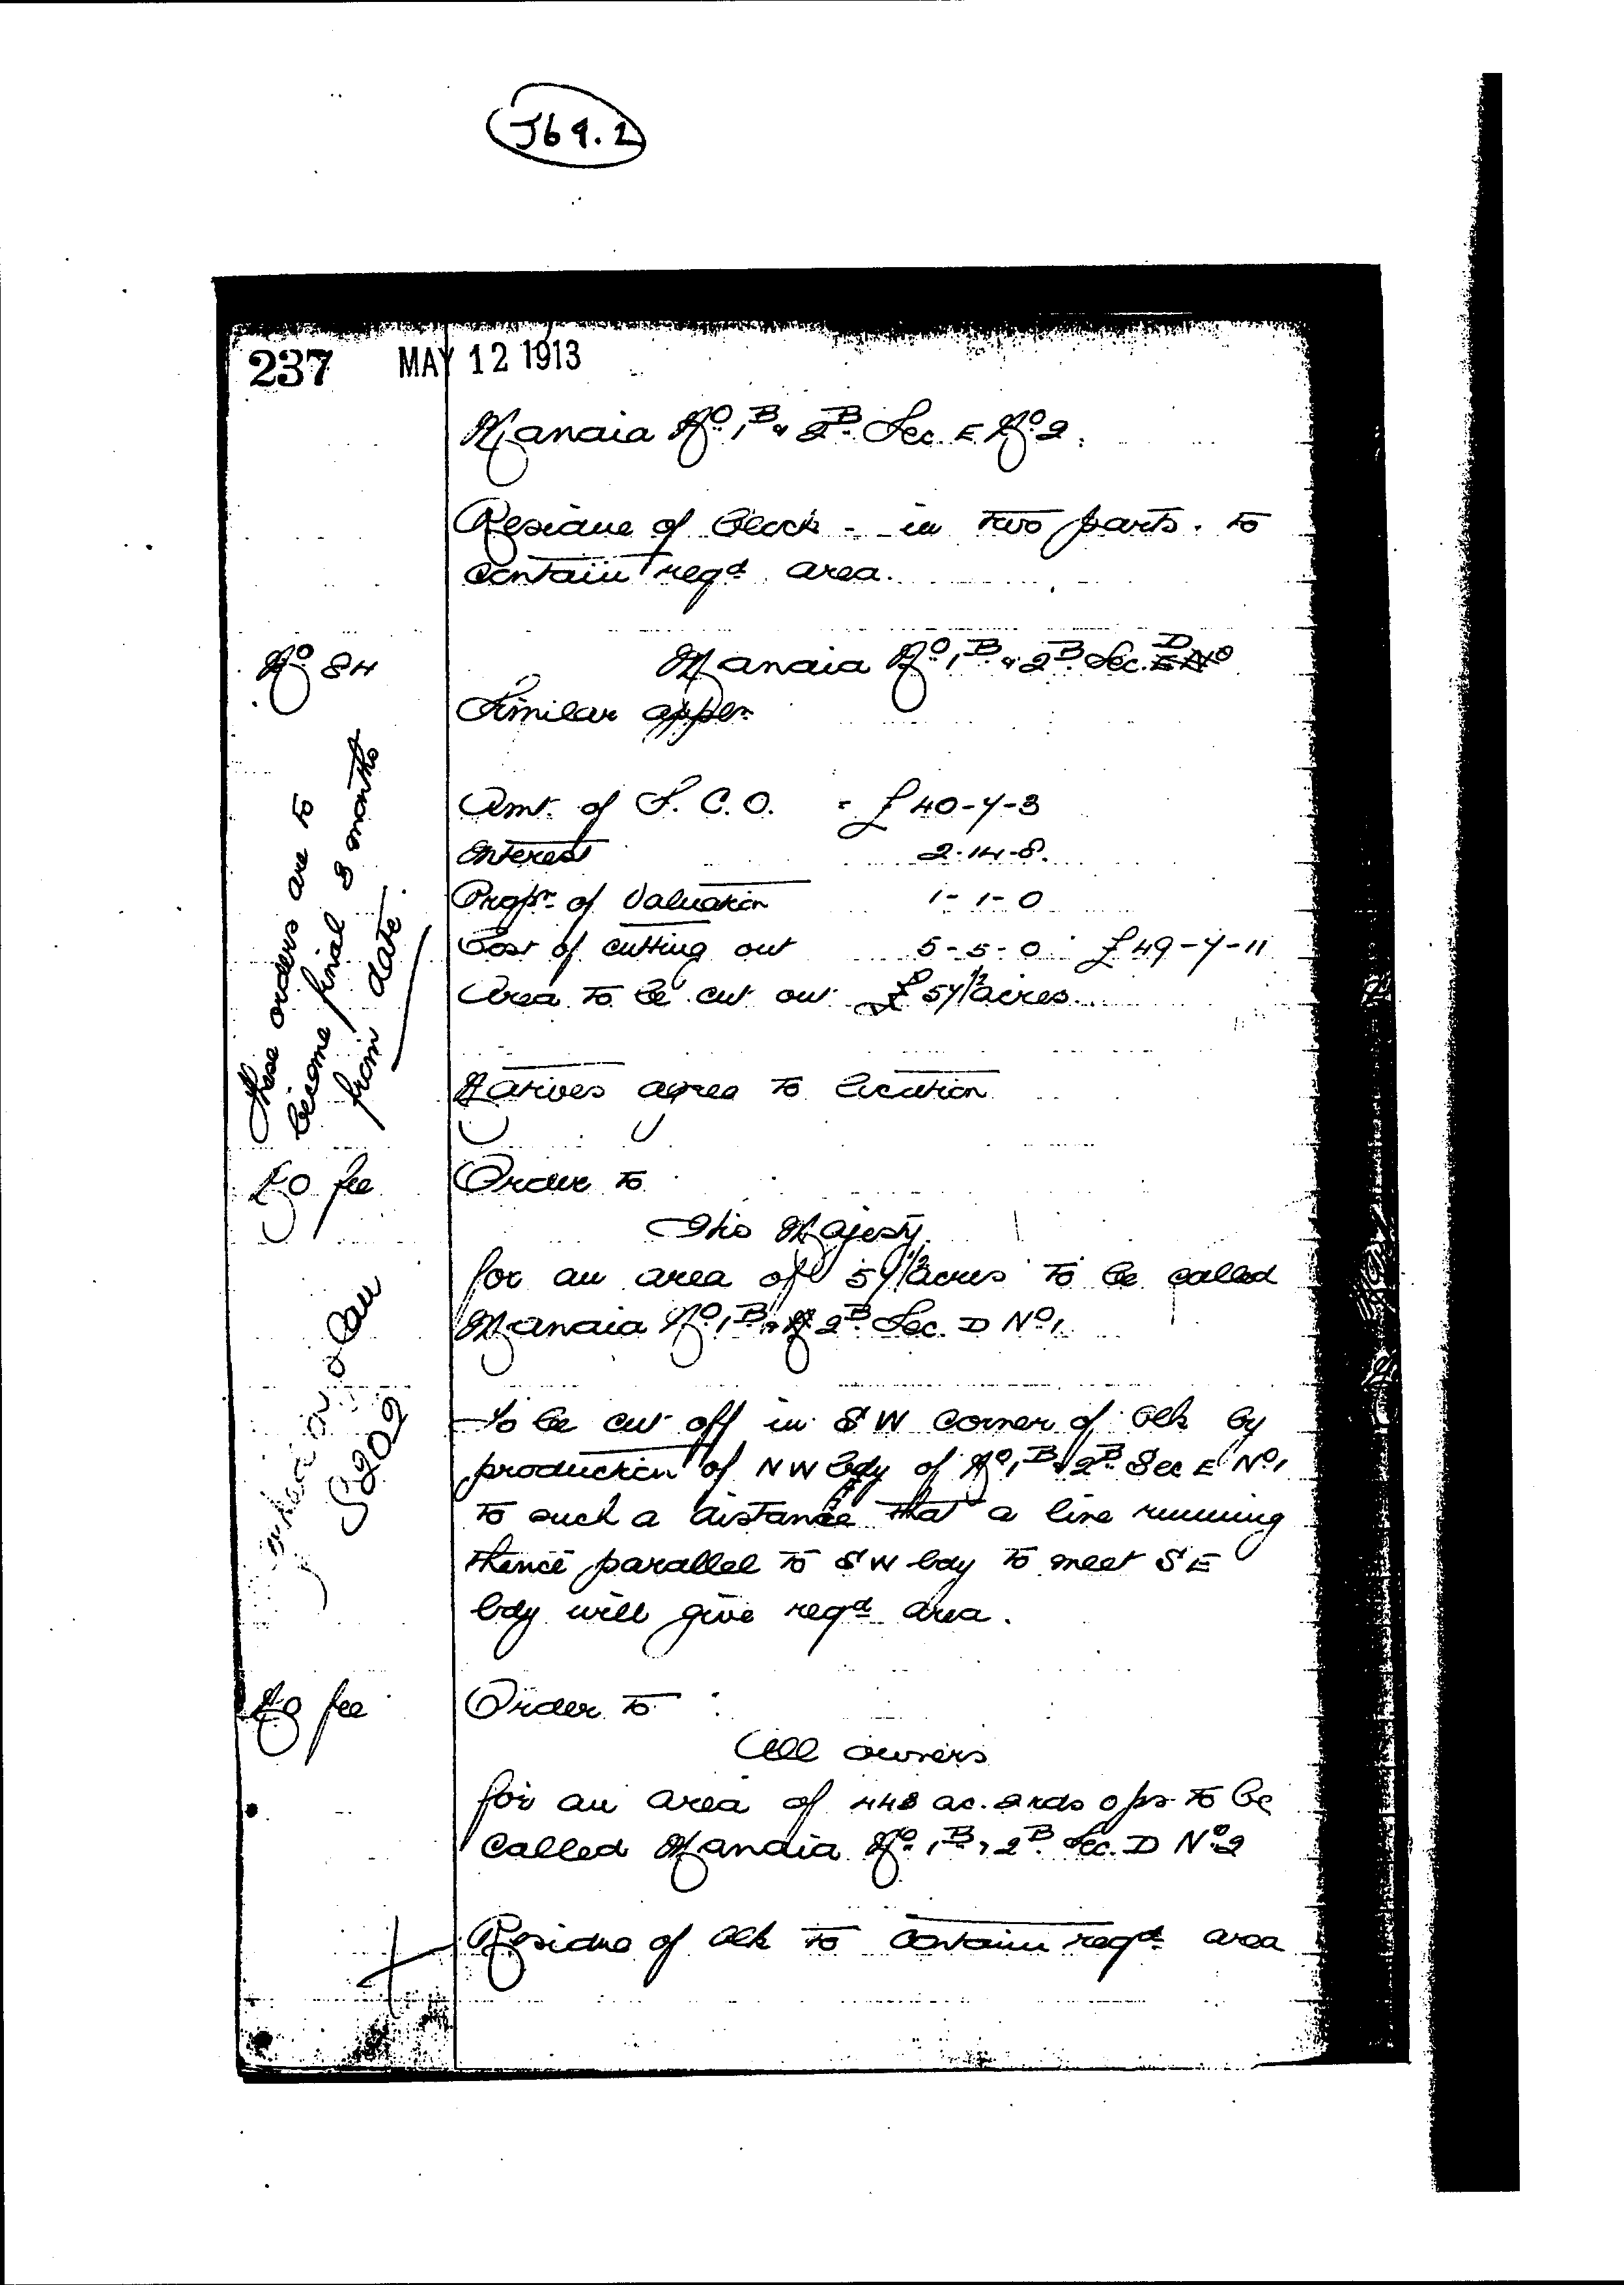 J69.2
237 MAY 12 1913
Manaia No. 1B & 2B Sec E No. 2.
Residue of block - in two parts. to
contain reqd area.
No 84
Manaia No. 1B & 2B Sec. D
Similar appln
Amt. of S. C. O. = £40-7-3
Interest 2-14-8.
Propn. of Valuation 1-1-0
Cost of cutting out 5-5-0 £49-7-11
Area to be cut out 57½ acres
These orders are to
become final 3 months
from date.
Natives agree to location
No fee
Order to
His Majesty
for an area of 57½ acres to be called
Manaia No. 1B & 2B Sec. D No. 1
on plan
To be cut off in SW corner of blk by
production of NW bdy of No. 1B & 2B Sec E No. 1
to such a distance that a line running
thence parallel to SW bdy to meet SE
bdy will give reqd area.
No fee
Order to
All owners
for an area of 448 ac. 2 rds 0 ps to be
called Manaia No. 1B & 2B Sec. D No. 2
Residue of blk to contain reqd area